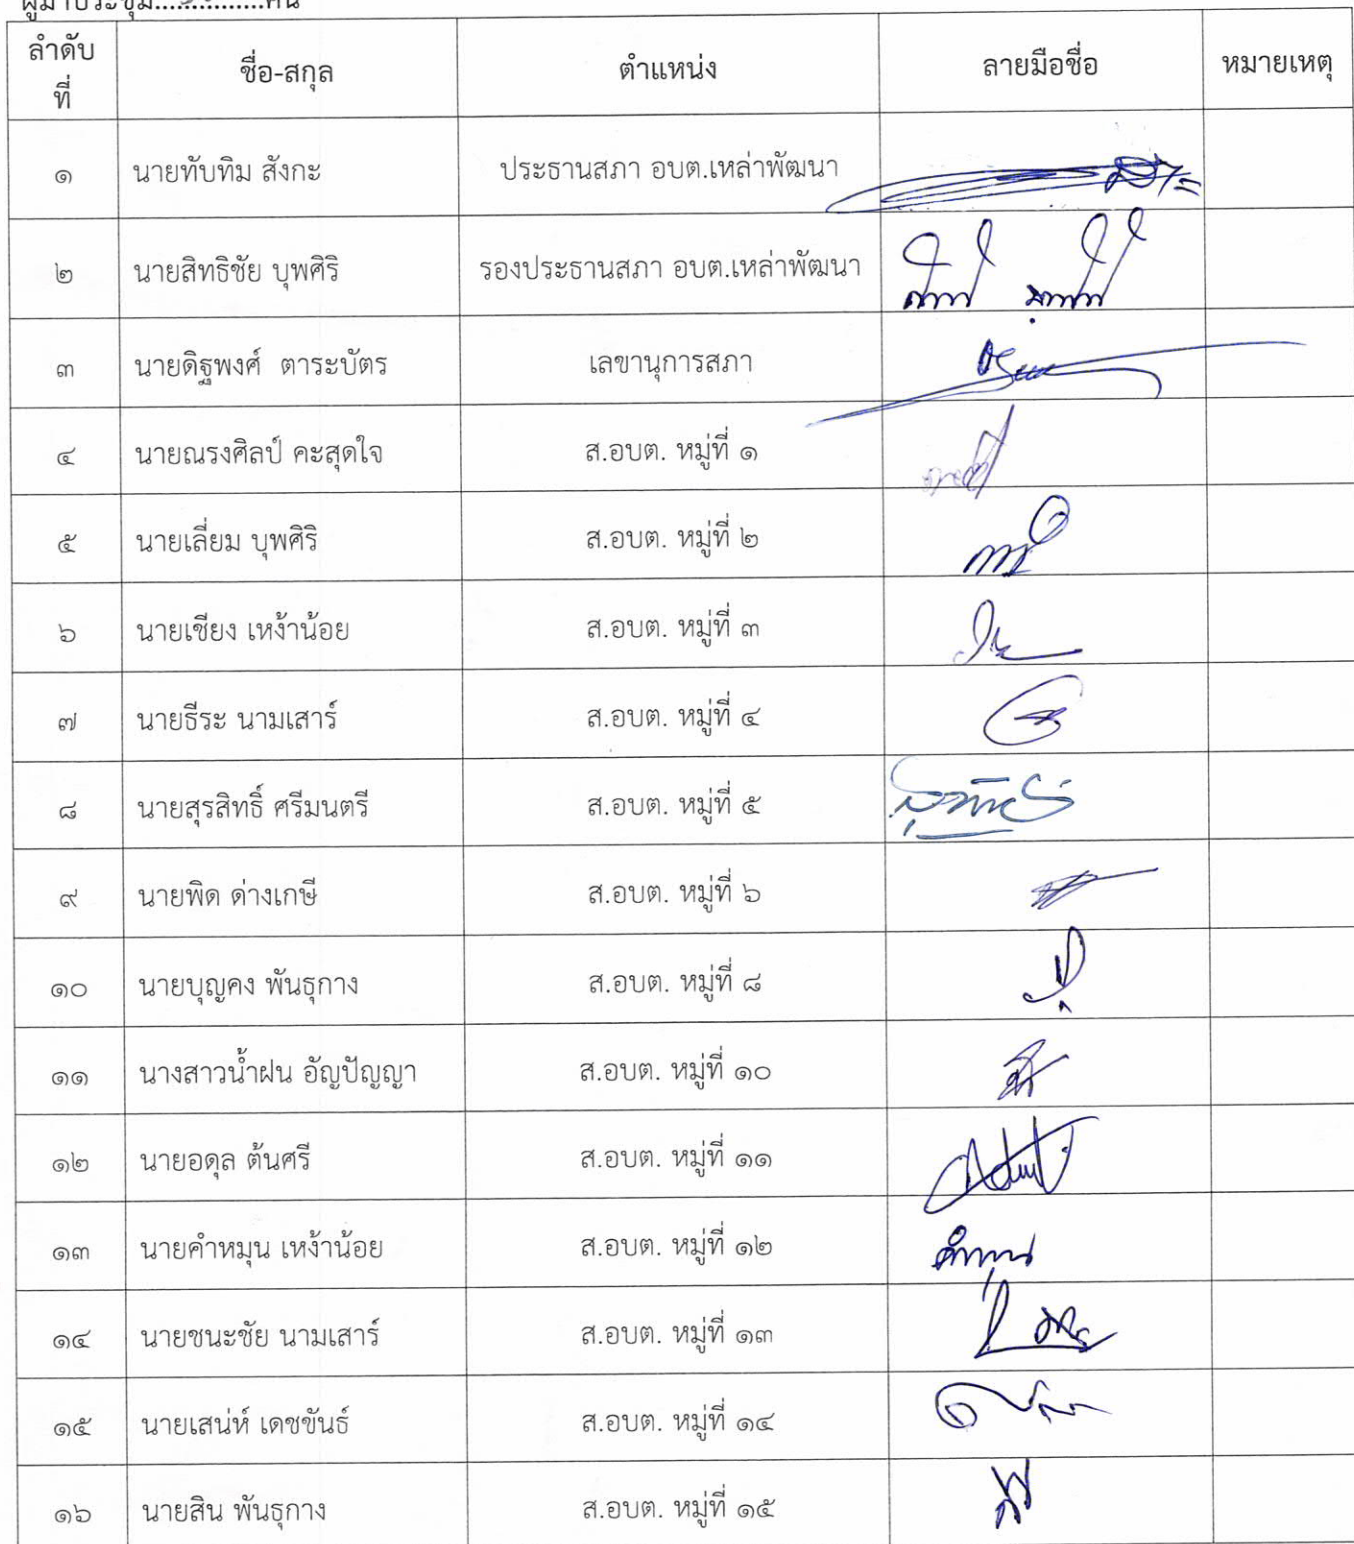 ผู้มาประชุม..............คน
ลำดับที่ ชื่อ-สกุล ตำแหน่ง ลายมือชื่อ หมายเหตุ
๑ นายทับทิม สังกะ ประธานสภา อบต.เหล่าพัฒนา
๒ นายสิทธิชัย บุพศิริ รองประธานสภา อบต.เหล่าพัฒนา
๓ นายดิฐพงศ์ ตาระบัตร เลขานุการสภา
๔ นายณรงศิลป์ คะสุดใจ ส.อบต. หมู่ที่ ๑
๕ นายเลี่ยม บุพศิริ ส.อบต. หมู่ที่ ๒
๖ นายเชียง เหง้าน้อย ส.อบต. หมู่ที่ ๓
๗ นายธีระ นามเสาร์ ส.อบต. หมู่ที่ ๔
๘ นายสุรสิทธิ์ ศรีมนตรี ส.อบต. หมู่ที่ ๕
๙ นายพิด ด่างเกษี ส.อบต. หมู่ที่ ๖
๑๐ นายบุญคง พันธุกาง ส.อบต. หมู่ที่ ๘
๑๑ นางสาวน้ำฝน อัญปัญญา ส.อบต. หมู่ที่ ๑๐
๑๒ นายอดุล ต้นศรี ส.อบต. หมู่ที่ ๑๑
๑๓ นายคำหมุน เหง้าน้อย ส.อบต. หมู่ที่ ๑๒ คำหมุน
๑๔ นายชนะชัย นามเสาร์ ส.อบต. หมู่ที่ ๑๓
๑๕ นายเสน่ห์ เดชขันธ์ ส.อบต. หมู่ที่ ๑๔
๑๖ นายสิน พันธุกาง ส.อบต. หมู่ที่ ๑๕